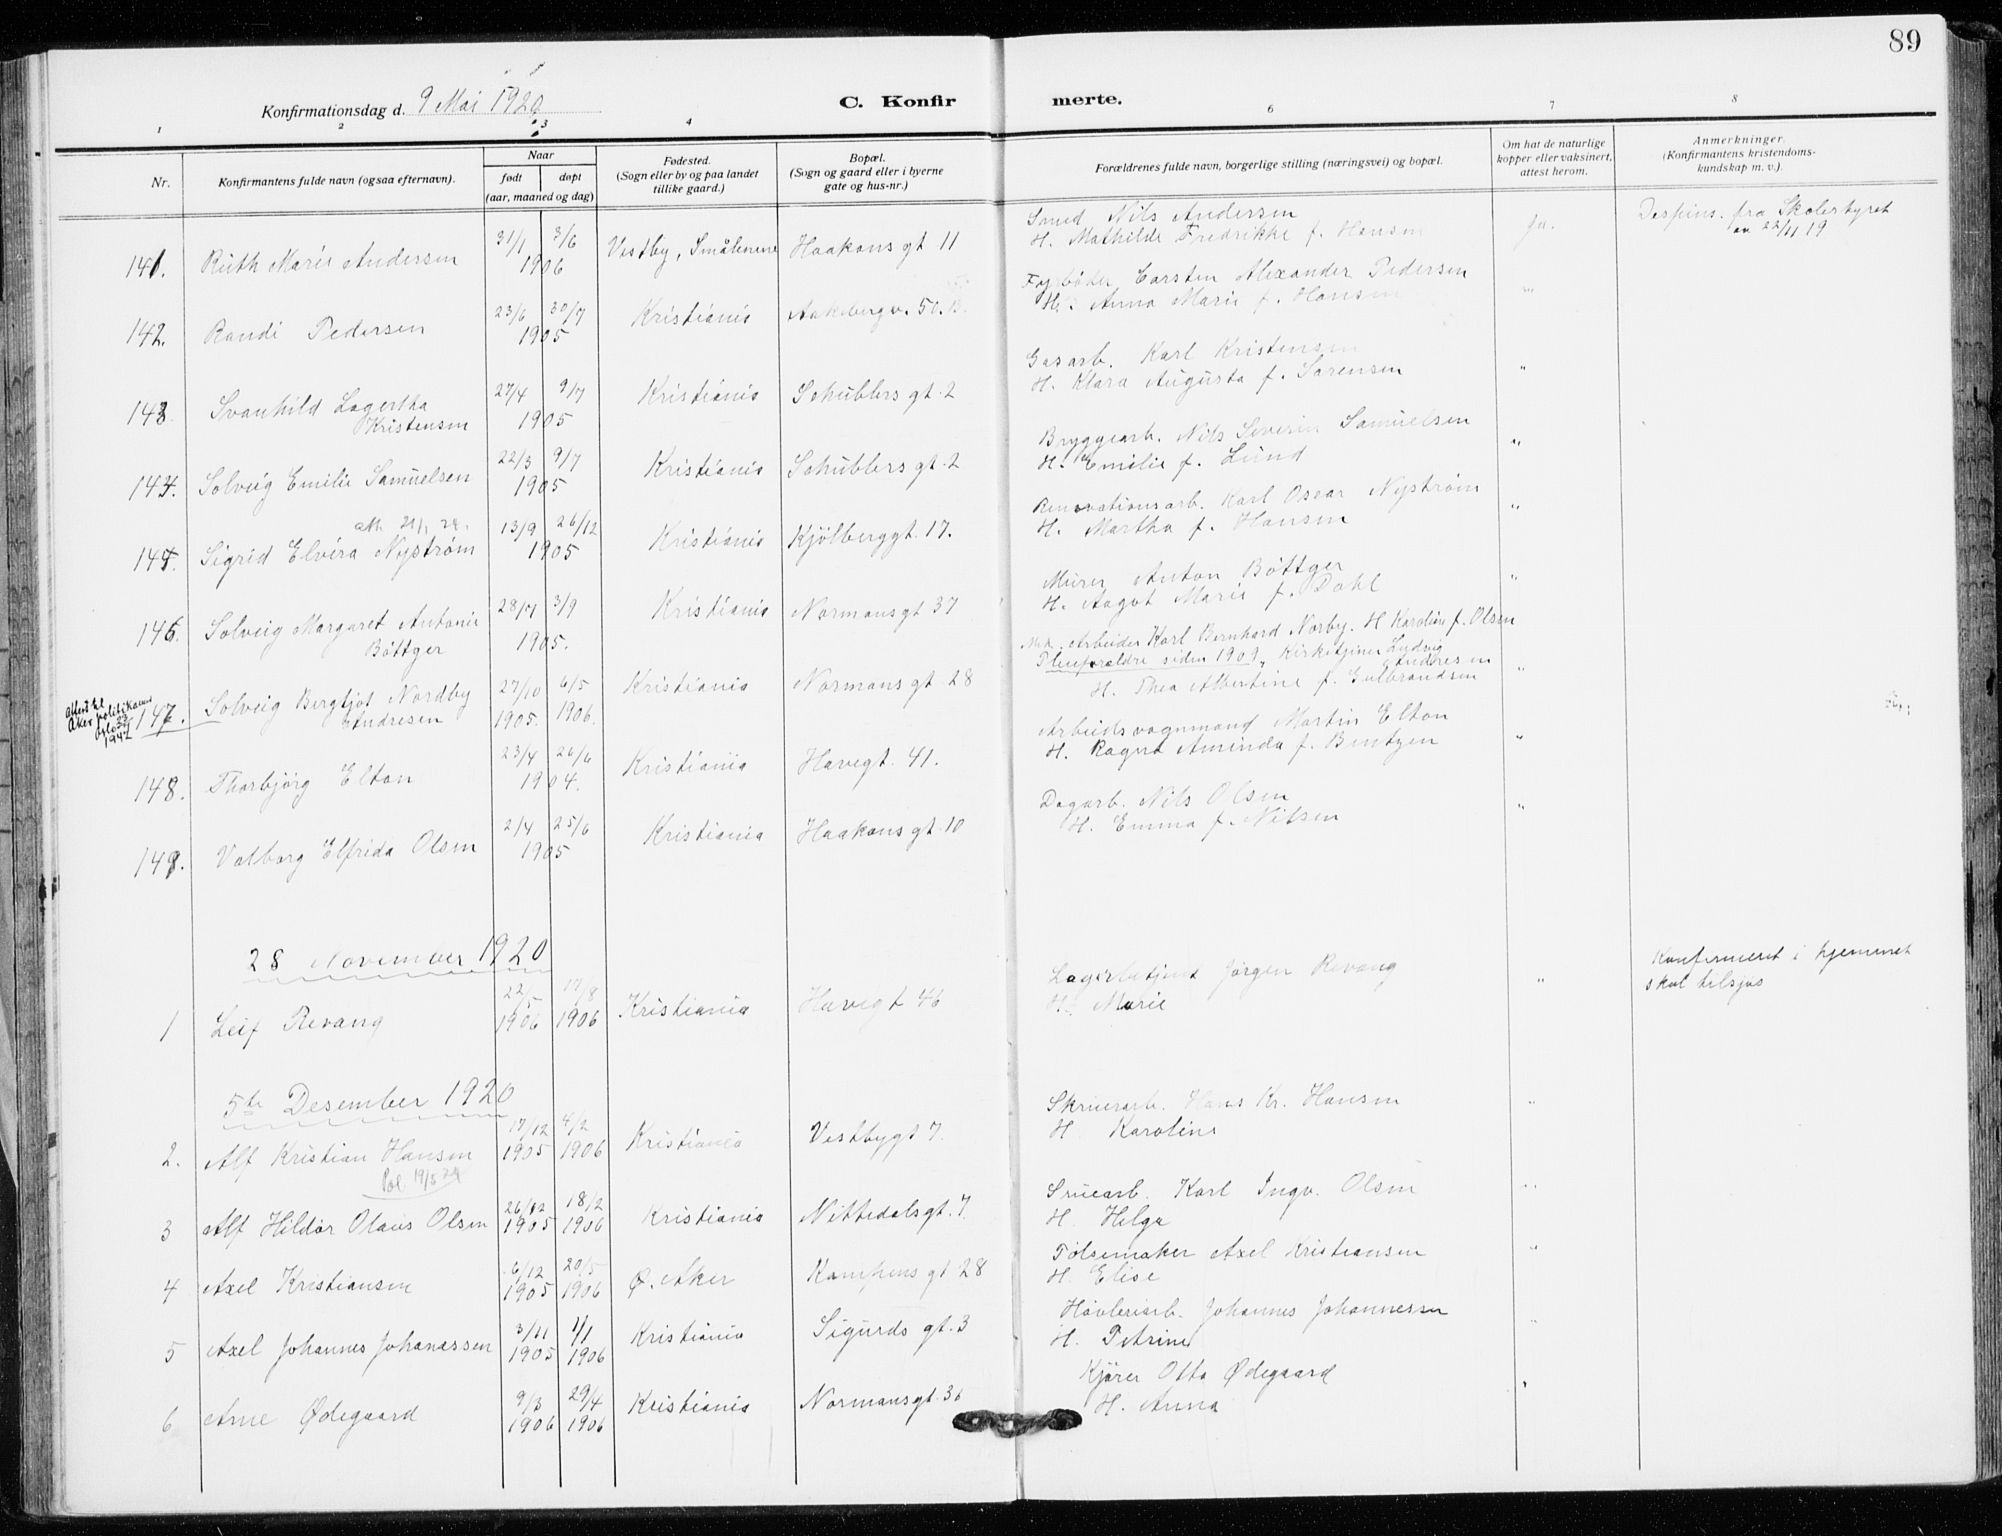 89
Konfirmationsdag d. 9 Mai 1920
C. Konfirmerte.
1 2 3 4 6 7 8
Nr.
Konfirmantens fulde navn (ogsaa efternavn).
Naar
født døpt
(aar, maaned og dag)
Fødested.
(Sogn eller by og paa landet
tillike gaard.)
Bopæl.
(Sogn og gaard eller i byerne
gate og hus-nr.)
Forældrenes fulde navn, borgerlige stilling (næringsvei) og bopæl.
Om hat de naturlige
kopper eller vaksinert,
attest herom.
Anmerkninger.
(Konfirmantens kristendoms-
kundskap m. v.).
141. Ruth Marie Andersen 31/1 3/6 1906 Vestby, Smålenene Haakons gt 11
Smed Nils Andersen
H. Mathilde Fredrikke f. Hansen
ja.
Dispens. fra Skolestyret
av 22/11 19
142. Randi Pedersen 23/6 30/7 1905 Kristiania Aakebergv. 50. B.
Carsten Alexander Pedersen
H. Anna Marie f. Hansen
"
143 Svanhild Lagertha
Kristensen
27/4 9/7 1905 Kristiania Schüblers gt. 2
Gasarb. Karl Kristensen
H. Klara Augusta f. Sørensen
"
144. Solveig Emilie Samuelsen 22/3 9/7 1905 Kristiania Schüblers gt. 2
Bryggearb. Nils Severin Samuelsen
H. Emilie f. Lund
"
att. 21/1 24.
145. Sigrid Elvira Nystrøm 13/9 26/12 1905 Kristiania Kjølberggt. 17.
Renovationsarb. Karl Oscar Nystrøm
H. Martha f. Hansen
"
146. Solveig Margaret Antonie
Bøttger
28/7 3/9 1905. Kristiania Normansgt 37
Murer Anton Bøttger
H. Aagot Marie f. Dahl
"
Attest til
Aker politikamer
Oslo
1947
147. Solveig Bergljot Nordby
Andresen
27/10 1905. 6/5 1906. Kristiania Normans gt 28
Mek. Arbeider Karl Bernhard Norby. H Karoline f. Olsen
Pleieforældre siden 1909, Kirketjener Ludvig
Andresen
H. Thea Albertine f. Gulbrandsen
"
148. Thorbjørg Elton 23/4 26/6 1904. Kristiania Havegt. 41.
Arbeidsvognmand Martin Elton
H. Ragna Aminda f. Bentzen
"
149. Valborg Elfrida Olsen 2/4 25/6 1905 Kristiania Haakons gt. 10
Dagarb. Nils Olsen
H. Emma f. Nilsen
"
28 November 1920
1 Leif Revang 22/5 1906 17/8 1906 Kristiania Havegt 46
Lagerbetjent Jørgen Revang
H. Marie
"
Konfirmeret i hjemmet
skal tilsjøs
5te Desember 1920
2. Alf Kristian Hansen 17/12 1905 4/2 1906 Kristiania Vestbygt 7.
Pol 19/5 24
Skruearb. Hans Kr. Hansen
H. Karoline
"
3 Alf Hildor Olaus Olsen 26/12 1905 18/2 1906 Kristiania Nittedalsgt. 7.
Sruearb. Karl Ingv. Olsen
H. Helga
"
4 Axel Kristiansen 6/12 1905 20/5 1906 Ø. Aker Kampens gt 28
Pølsemaker Axel Kristiansen
H. Elise
"
5 Axel Johannes Johanessen 3/11 1905 1/1 1906 Kristiania Sigurds gt. 3
Høvleriarb. Johannes Johannessen
H. Petrine
"
6 Arne Ødegaard 9/3 1906 29/4 1906 Kristiania Normansgt. 36
Kjører Otto Ødegaard
H. Anna
"